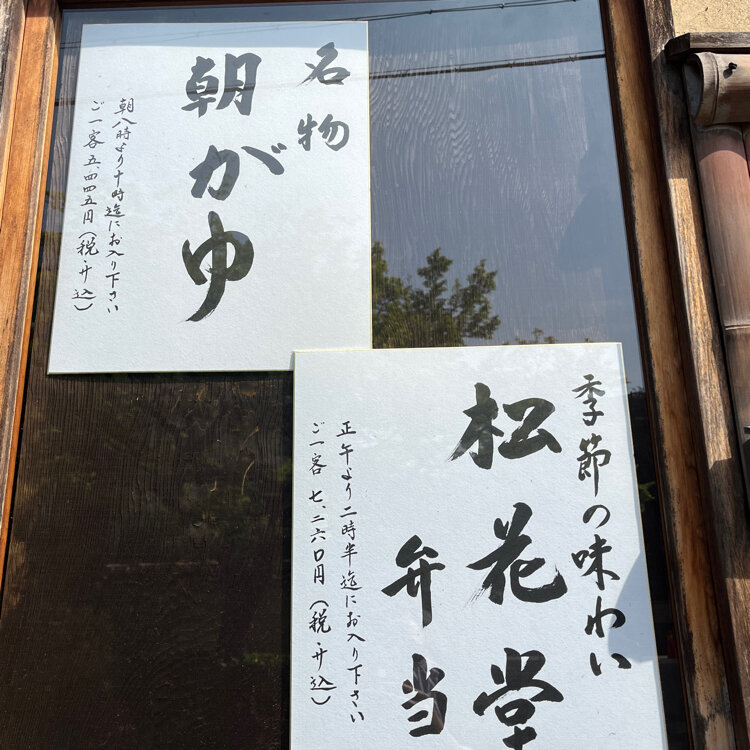 名物
朝がゆ
朝八時より十時迄にお入り下さい
ご一客五、四四五円（税・サ込）
季節の味わい
松花堂
弁当
正午より二時半迄にお入り下さい
ご一客 七、二六〇円（税・サ込）